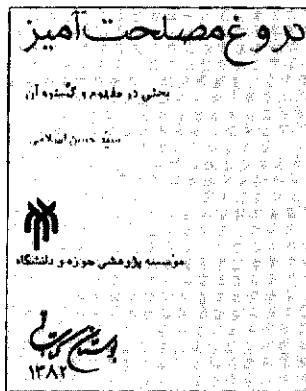 دروغ مصلحت‌آمیز
بحثی در مفهوم و گستره آن
سید حسن اسلامی
مؤسسه پژوهشی حوزه و دانشگاه
بوستان کتاب
۱۳۸۲